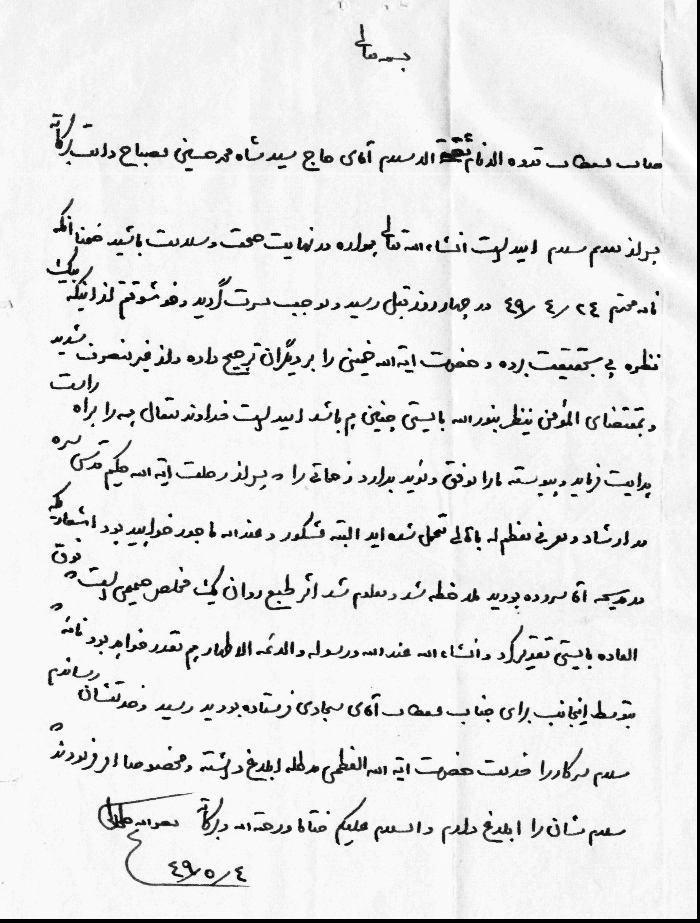 بسمه تعالی
جناب مستطاب قدوة الانام ثقة الاسلام آقای حاج سید شاه محمد حسینی مصباح دامت برکاته
پس از سلام امید است انشاءالله تعالی همواره در نهایت صحت و سلامت باشید ضمنا آنکه
نامه محترم ۲۴ / ۴ / ۴۹ در چهار روز قبل رسید و موجب مسرت گردید و خوشوقتم از اینکه بیک
نظره پی بحقیقت برده و حضرت آیة الله خمینی را بر دیگران ترجیح داده و از غیر منصرف شدید
و بمقتضای المؤمن ینظر بنور الله بایستی چنین هم باشد امید است خداوند متعال همه را براه راست
هدایت فرماید و پیوسته ما را موفق و مؤید بدارد زحماتی را که پس از رحلت آیة الله حکیم قدس سره
در ارشاد و معرفی معظم له باهالی تحمل شده اید البته مشکور و عند الله ماجور خواهید بود اشعاریکه
در مدیحه آقا سروده بودید ملاحظه شد و معلوم شد اثر طبع روان یک مخلص صمیمی است که فوق
العاده بایستی تقدیر کرد و انشاءالله عند الله و رسوله والائمة الاطهار هم تقدیر خواهد بود نامه ای که
بتوسط اینجانب برای جناب مستطاب آقای سجادی فرستاده بودید رسید و خدمتشان رساندم
سلام سرکار را خدمت حضرت آیة الله العظمی مدظله ابلاغ داشته و مخصوصا امر فرمودند که
سلامشان را ابلاغ دارم والسلام علیکم ختاما ورحمة الله وبرکاته نصرالله خلخالی
۴ / ۵ / ۴۹